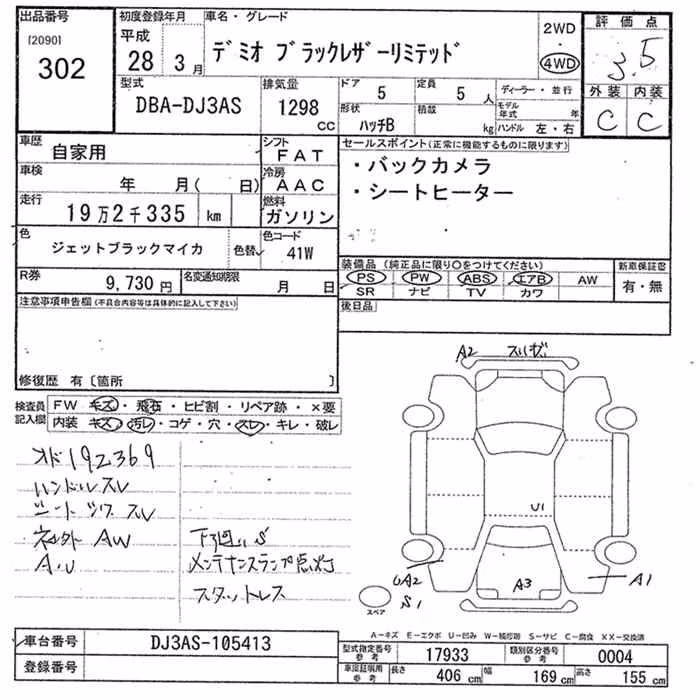 出品番号
[2090]
302
初度登録年月
平成
28 3月
車名・グレード
デミオ ブラックレザーリミテッド
2WD
4WD
評価点
3.5
外装 内装
C C
型式
DBA-DJ3AS
排気量
1298 cc
ドア
5
形状
ハッチB
定員
5 人
積載
kg
ディーラー・並行
モデル年式 年
ハンドル 左・右
車歴
自家用
シフト
FAT
車検
年 月( 日)
冷房
AAC
走行
19万2千335 km
燃料
ガソリン
色
ジェットブラックマイカ
色替
色コード
41W
R券
9,730 円
名変通知期限
月 日
セールスポイント(正常に機能するものに限ります)
・バックカメラ
・シートヒーター
装備品(純正品に限り○をつけてください)
PS PW ABS エアB AW
SR ナビ TV カワ
新車保証書
有・無
後日品
注意事項申告欄(不具合内容等は具体的に記入して下さい)
修復歴 有〔箇所 〕
検査員記入欄
FW キズ・飛石・ヒビ割・リペア跡・×要
内装 キズ・汚レ・コゲ・穴・スレ・キレ・破レ
オド192369
ハンドルスレ
シート シワ スレ
ネジ外 AW
下廻りS
メンテナンスランプ点灯
スタットレス
A2
U1
A3
A1
S1
スペア
A-キズ E-エクボ U-凹み W-補修跡 S-サビ C-腐食 XX-交換済
車台番号
DJ3AS-105413
登録番号
型式指定番号 参考
17933
類別区分番号 参考
0004
車庫証明用 参考
長さ 406 cm 幅 169 cm 高さ 155 cm